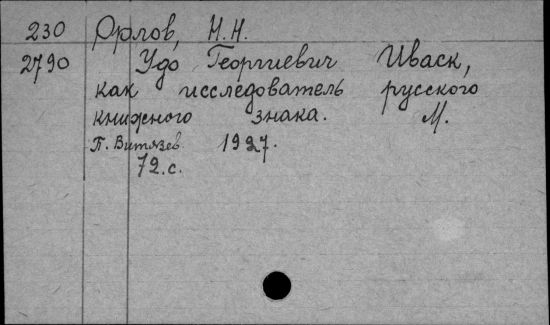 230 Орлов, Н.Н.
2790 Удо Георгиевич Иваск,
как исследователь русского
книжного знака. М.
П. Витязев 1927.
72.с.